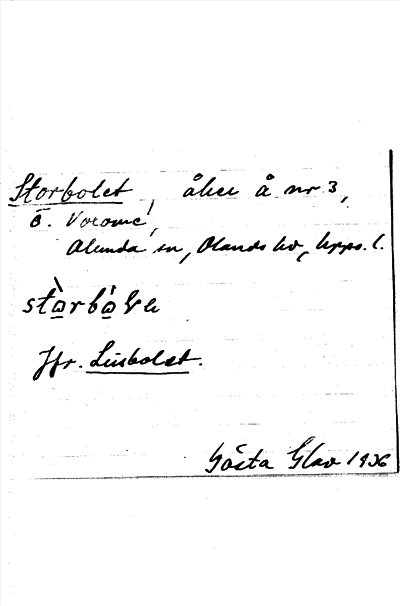 Storbolet, åker å nr 3,
Ö. Vorome,
Alunda sn, Olands hd, Upps. l.
Jfr. Lusbolet.
Gösta Glav 1936